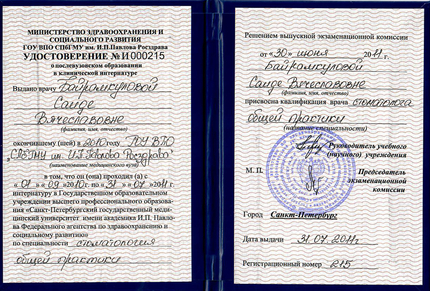 МИНИСТЕРСТВО ЗДРАВООХРАНЕНИЯ И
СОЦИАЛЬНОГО РАЗВИТИЯ
ГОУ ВПО СПбГМУ им. И.П.Павлова Росздрава
УДОСТОВЕРЕНИЕ №И000215
о послевузовском образовании
в клинической интернатуре
Выдано врачу Байрамкуловой
Саиде
Вячеславовне
(фамилия, имя, отчество)
окончившему (шей) в 2010 году ГОУ ВПО
„СПбГМУ им. И.П. Павлова Росздрава"
(наименование медицинского вуза)
в том, что он (она) проходил (а) с
«01» 09 2010г. по «31» 07 2011г.
интернатуру в Государственном образовательном
учреждении высшего профессионального образова-
ния «Санкт-Петербургский государственный меди-
цинский университет имени академика И.П. Павло-
ва Федерального агентства по здравоохранению и
социальному развитию»
по специальности стоматология
общей практики
Решением выпускной экзаменационной комиссии
от «30» июня 2011г.
Байрамкуловой
Саиде Вячеславовне
(фамилия, имя, отчество)
присвоена квалификация врача стоматолога
общей практики
(название специальности)
Руководитель учебного
(научного) учреждения
М. П.
Председатель
экзаменационной
комиссии
Город Санкт-Петербург
Дата выдачи 31.07.2011г.
Регистрационный номер 215